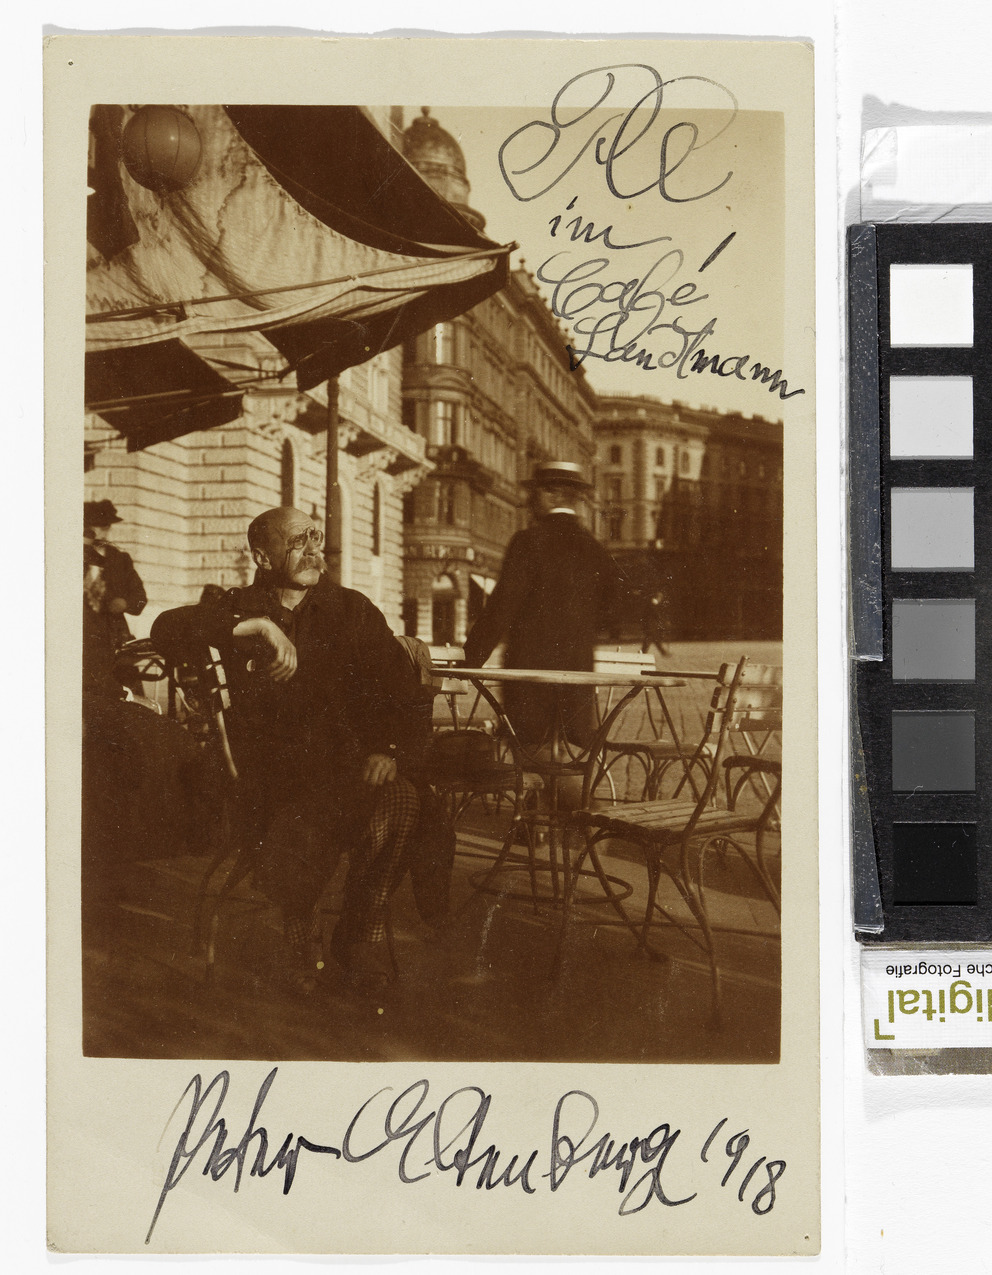 im
Café
Landtmann
Peter Altenberg 1918
che Fotografie
digital